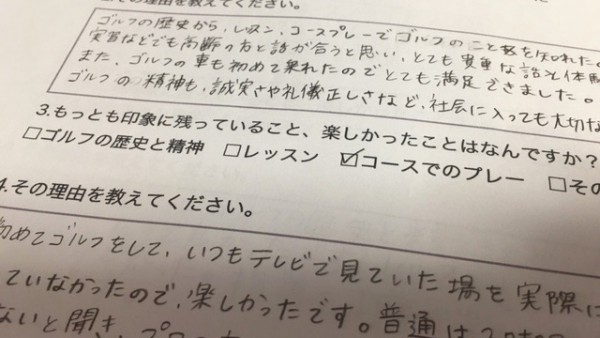 その理由を教えてください。
ゴルフの歴史から、レッスン、コースプレーでゴルフのこと
などでも の方と話が合うと思い、とても貴重な話と体
また、ゴルフの車も初めて乗れたのでとても満足できました。
ゴルフの精神も、誠実さや礼儀正しさなど、社会に入っても大切
3.もっとも印象に残っていること、楽しかったことはなんですか?
□ゴルフの歴史と精神 □レッスン ☑コースでのプレー □その
4.その理由を教えてください。
初めてゴルフをして、いつもテレビで見ていた場を実際に
ていなかったので、楽しかったです。普通は
ないと聞き、プロの